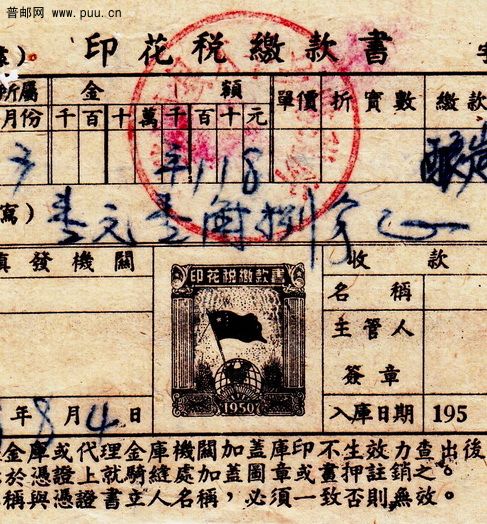 普邮网 www.puu.cn
印花稅繳款書
所屬 金額 單價 折實數 繳款
月份 千百十萬千百十元
1.18
壹元壹角捌分正
填發機關 收款
印花稅繳款書
名稱
主管人
簽章
1950
年8月4日 入庫日期 195
金庫或代理金庫機關加蓋庫印不生效力查出後
於憑證上就騎縫處加蓋圖章或畫押註銷之。
稱與憑證書立人名稱，必須一致否則無效。